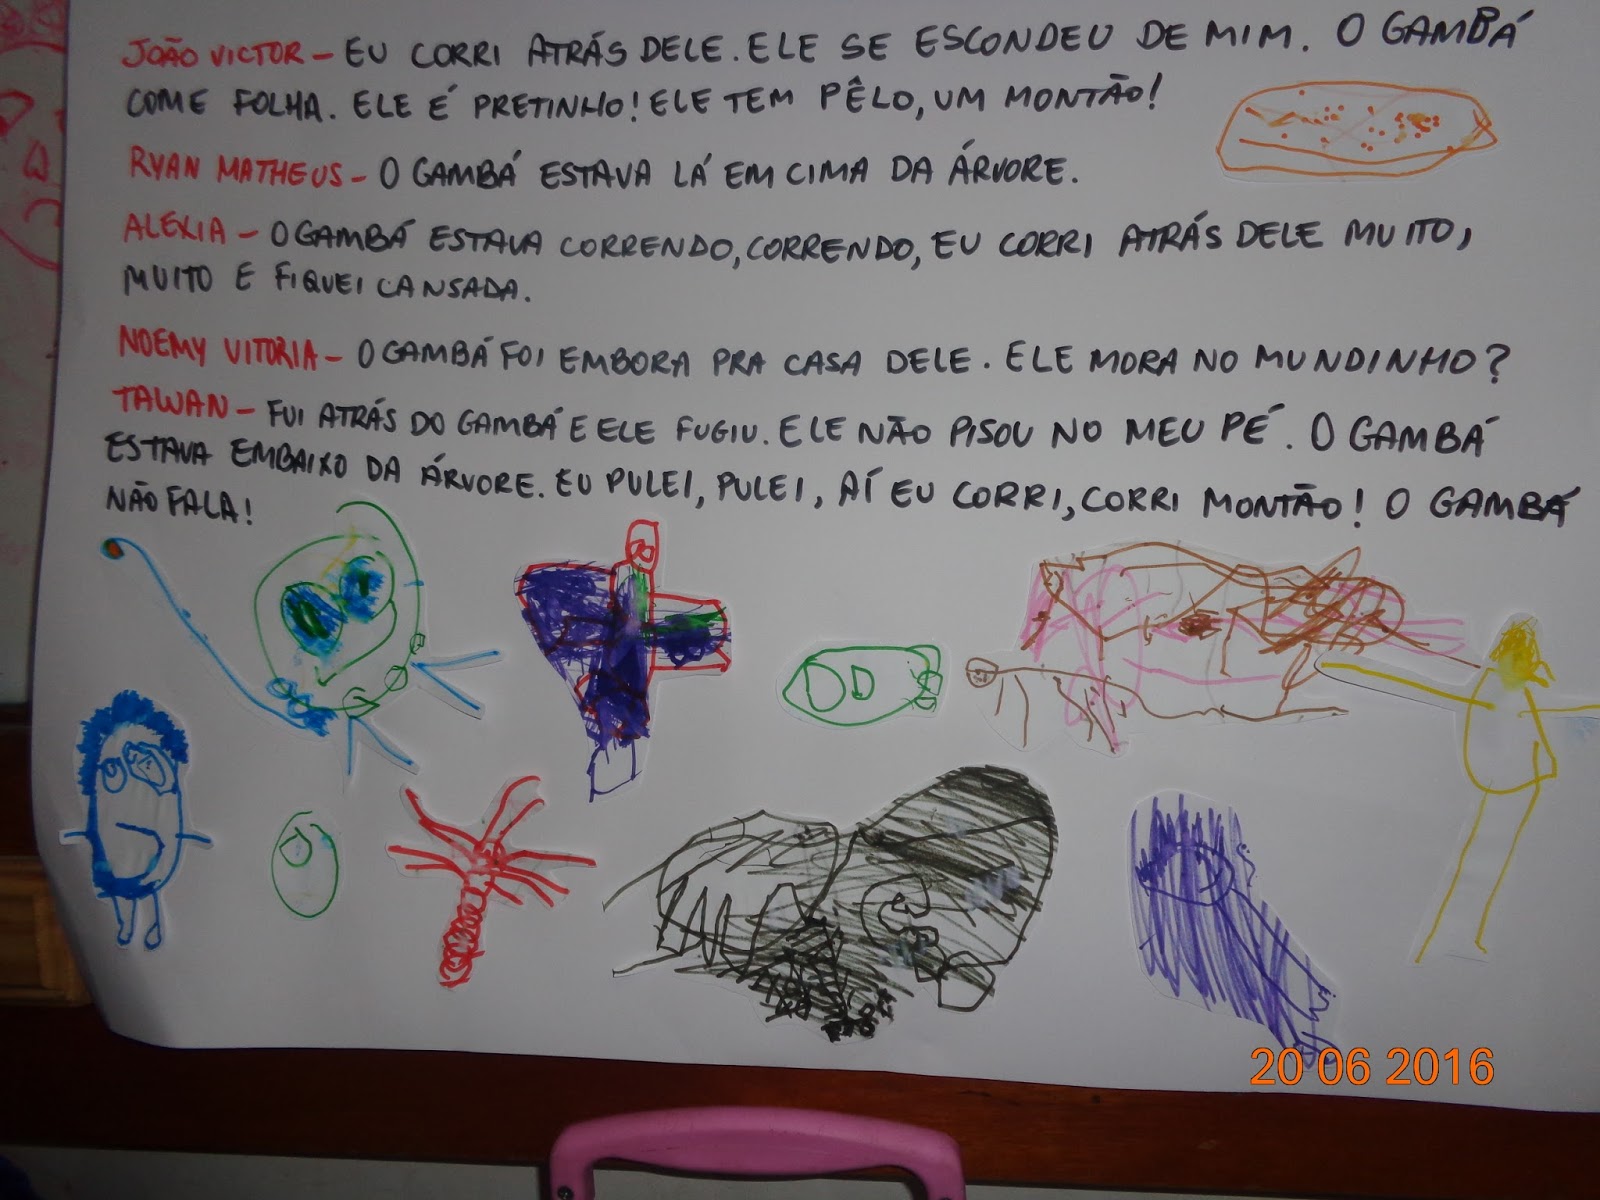 JOÃO VICTOR – EU CORRI ATRÁS DELE. ELE SE ESCONDEU DE MIM. O GAMBÁ
COME FOLHA. ELE É PRETINHO! ELE TEM PÊLO, UM MONTÃO!
RYAN MATHEUS – O GAMBÁ ESTAVA LÁ EM CIMA DA ÁRVORE.
ALEXIA – O GAMBÁ ESTAVA CORRENDO, CORRENDO, EU CORRI ATRÁS DELE MUITO,
MUITO E FIQUEI CANSADA.
NOEMY VITORIA – O GAMBÁ FOI EMBORA PRA CASA DELE. ELE MORA NO MUNDINHO?
TAWAN – FUI ATRÁS DO GAMBÁ E ELE FUGIU. ELE NÃO PISOU NO MEU PÉ. O GAMBÁ
ESTAVA EMBAIXO DA ÁRVORE. EU PULEI, PULEI, AÍ EU CORRI, CORRI MONTÃO! O GAMBÁ
NÃO FALA!
20 06 2016